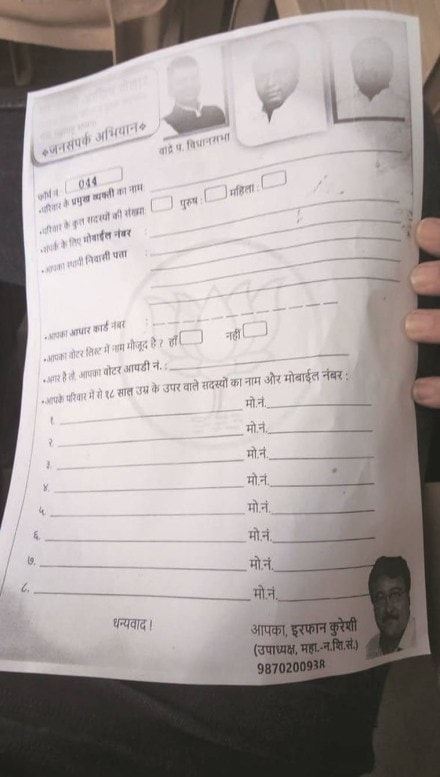 ❖जनसंपर्क अभियान❖
वांद्रे प. विधानसभा
फॉर्म नं. 044
•परिवार के प्रमुख व्यक्ती का नाम
•परिवार के कुल सदस्यों की संख्या पुरुष : महिला :
•संपर्क के लिए मोबाईल नंबर :
•आपका स्थायी निवासी पता :
•आपका आधार कार्ड नंबर :
•आपका वोटर लिस्ट में नाम मौजूद है ? हाँ नहीं
•अगर है तो, आपका वोटर आयडी नं. :
•आपके परिवार में से १८ साल उम्र के उपर वाले सदस्यों का नाम और मोबाईल नंबर :
१. मो.नं.
२. मो.नं.
३. मो.नं.
४. मो.नं.
५. मो.नं.
६. मो.नं.
७. मो.नं.
८. मो.नं.
धन्यवाद !
आपका, इरफान कुरेशी
(उपाध्यक्ष, महा.-न.शि.सं.)
9870200938